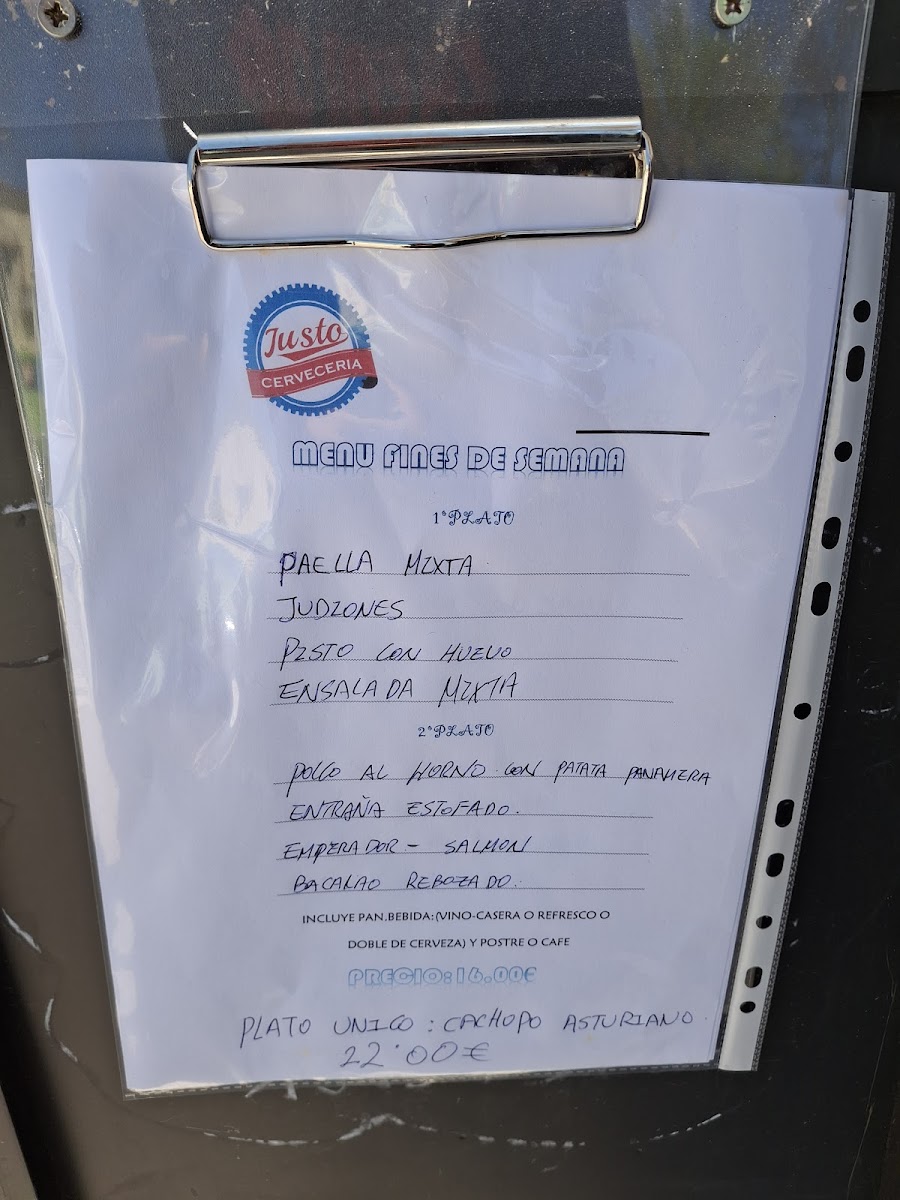 Justo
CERVECERIA
MENU FINES DE SEMANA
1º PLATO
PAELLA MIXTA
JUDIONES
PISTO CON HUEVO
ENSALADA MIXTA
2º PLATO
POLLO AL HORNO CON PATATA PANADERA
ENTRAÑA ESTOFADO.
EMPERADOR - SALMON
BACALAO REBOZADO.
INCLUYE PAN.BEBIDA:(VINO-CASERA O REFRESCO O
DOBLE DE CERVEZA) Y POSTRE O CAFE
PRECIO:16.00€
PLATO UNICO : CACHOPO ASTURIANO.
22'00€